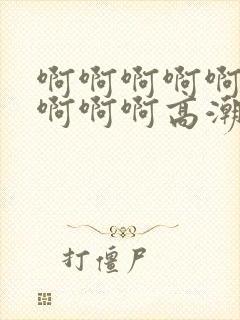 啊啊啊啊啊
啊啊啊高潮
打僵尸